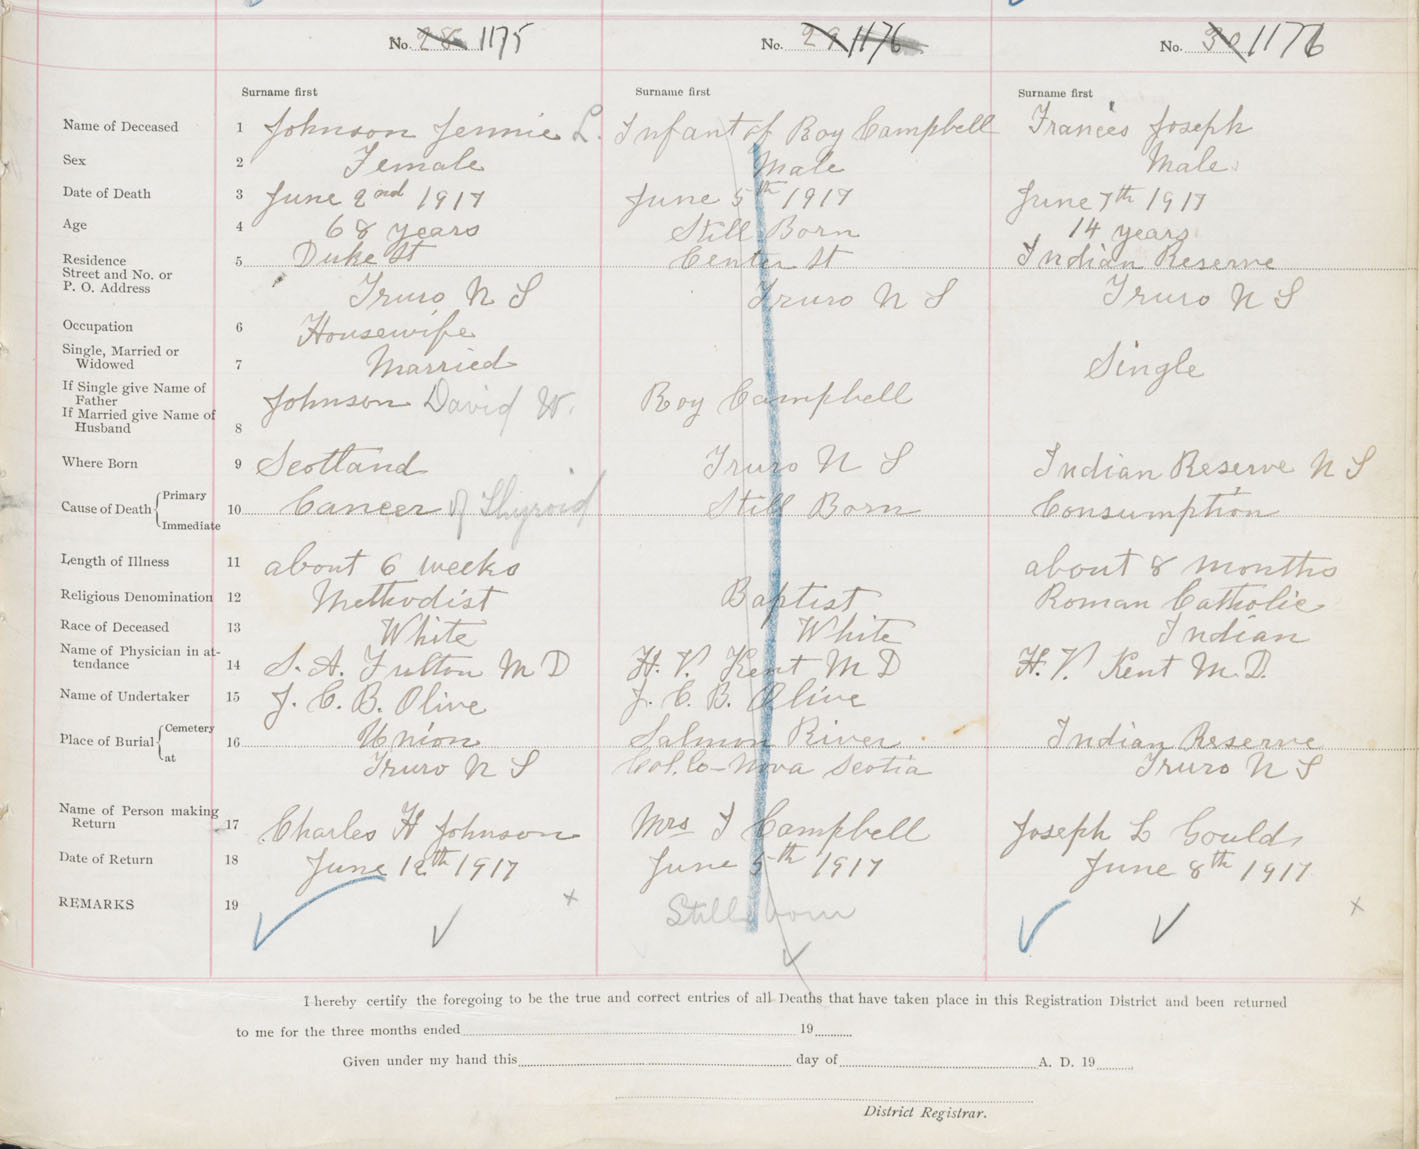 No. 28 1175 No. 29 1176 No. 30 1176
Surname first Surname first Surname first
Name of Deceased 1 Johnson Jennie L. Infant of Roy Campbell Francis Joseph
Sex 2 Female Male Male
Date of Death 3 June 2nd 1917 June 5th 1917 June 7th 1917
Age 4 68 years Still Born 14 years
Residence 5 Duke St Center St Indian Reserve
Street and No. or
P. O. Address Truro N S Truro N S Truro N S
Occupation 6 Housewife
Single, Married or
Widowed 7 Married Single
If Single give Name of
Father Johnson David W. Roy Campbell
If Married give Name of
Husband 8
Where Born 9 Scotland Truro N S Indian Reserve N S
Cause of Death Primary
Immediate 10 Cancer of Thyroid Still Born Consumption
Length of Illness 11 about 6 weeks about 8 months
Religious Denomination 12 Methodist Baptist Roman Catholic
Race of Deceased 13 White White Indian
Name of Physician in at-
tendance 14 S. A. Fulton M D H. V. Kent M D H. V. Kent M.D.
Name of Undertaker 15 J. C. B. Olive J. C. B. Olive
Place of Burial Cemetery
at 16 Union Salmon River Indian Reserve
Truro N S Col. Co- Nova Scotia Truro N S
Name of Person making
Return 17 Charles H Johnson Mrs J Campbell Joseph L Gould
Date of Return 18 June 12th 1917 June 5th 1917 June 8th 1917
REMARKS 19 Still born
I hereby certify the foregoing to be the true and correct entries of all Deaths that have taken place in this Registration District and been returned
to me for the three months ended 19
Given under my hand this day of A. D. 19
District Registrar.